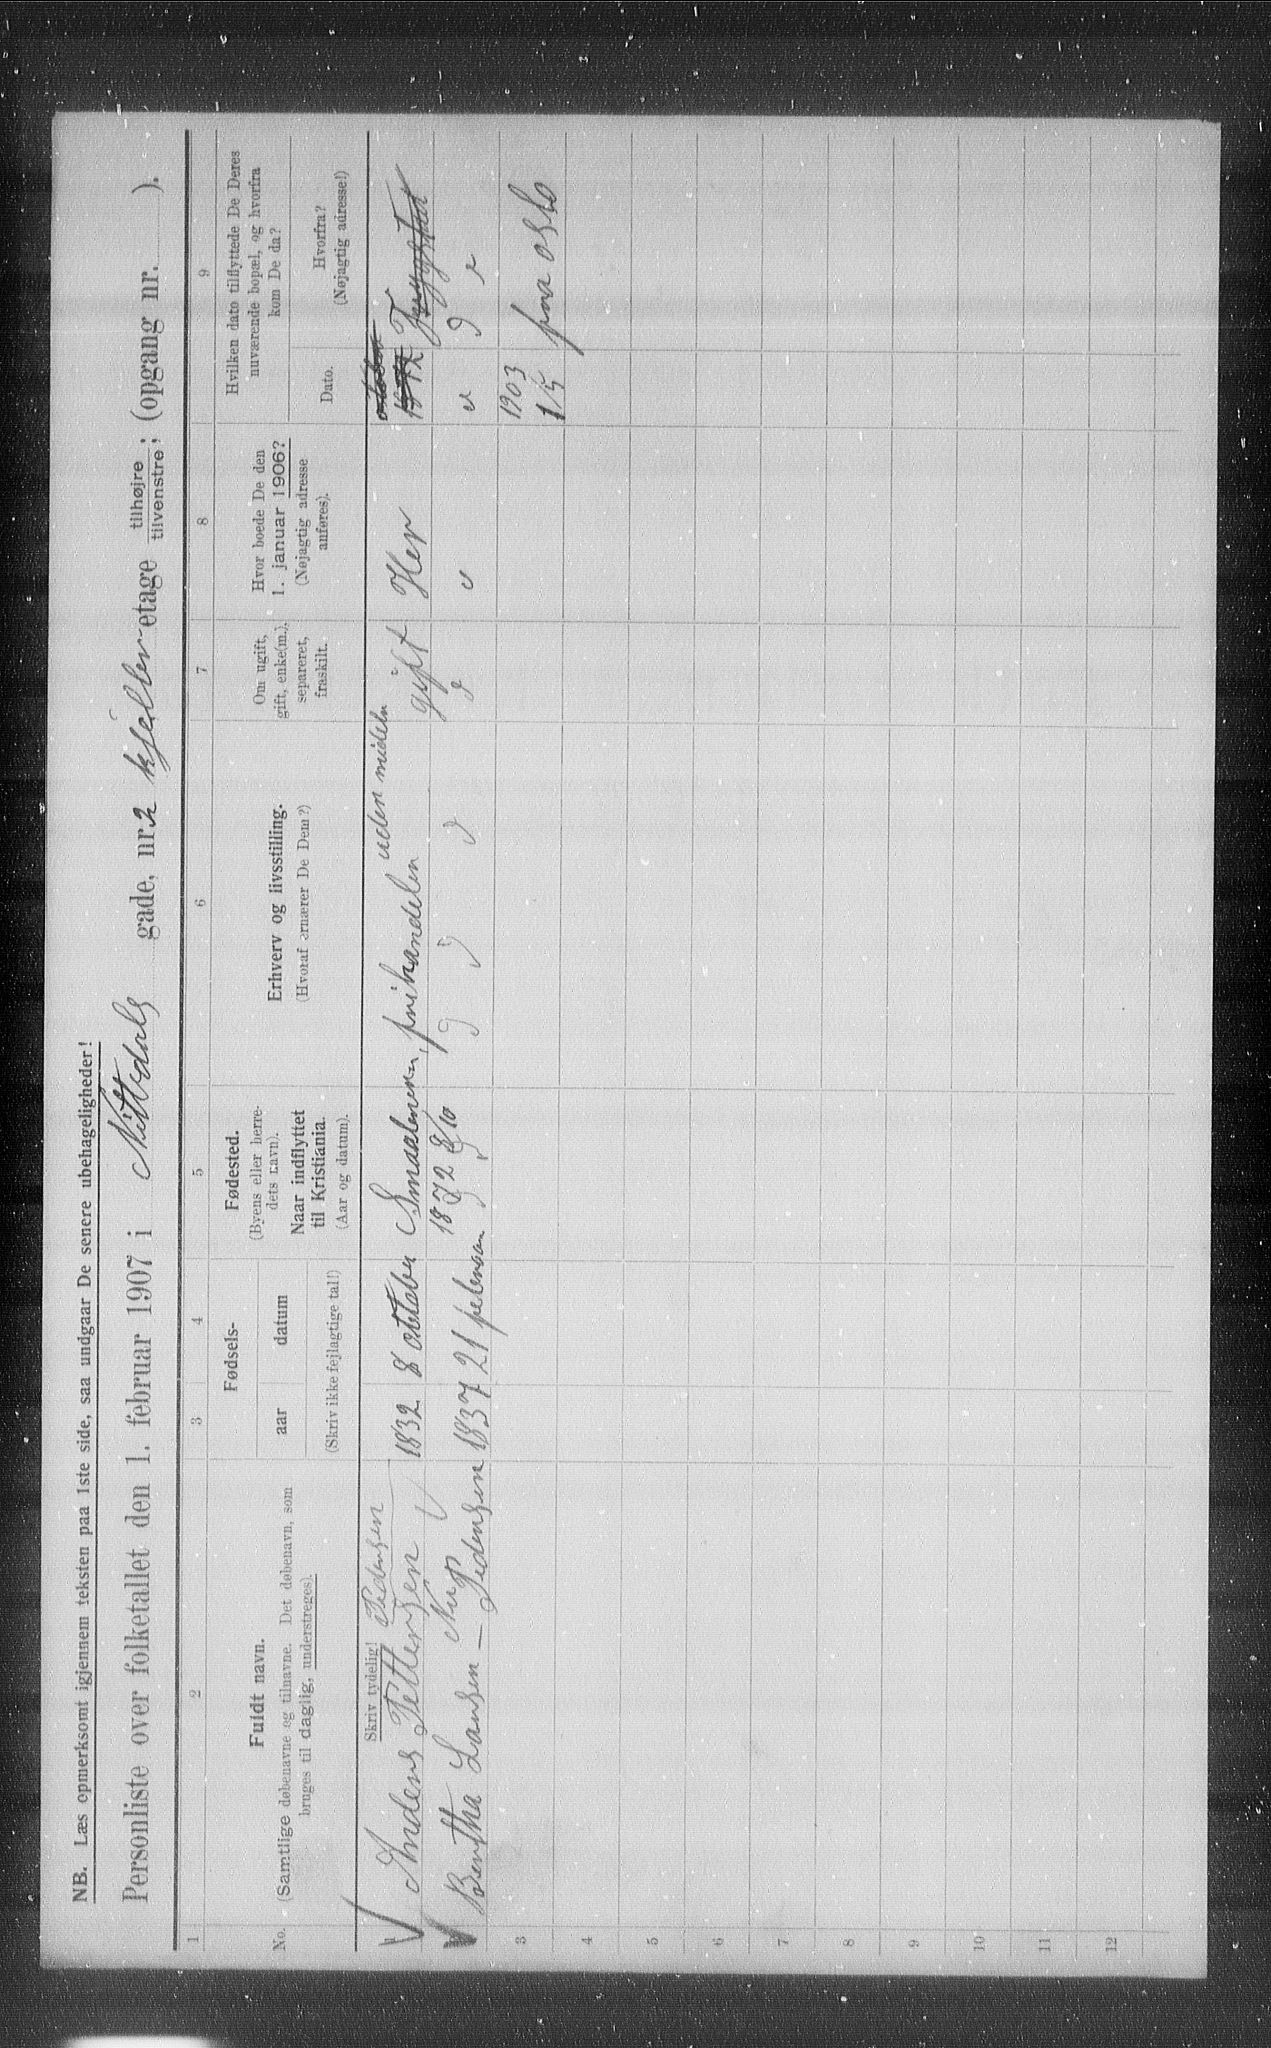 NB. Læs opmerksomt igjennem teksten paa 1ste side, saa undgaar De senere ubehageligheder!
Personliste over folketallet den 1. februar 1907 i Nittedals gade, nr. 2 kjelleretage tilhøjre / tilvenstre; (opgang nr. ).
1 2 3 4 5 6 7 8 9
No.
Fuldt navn.
(Samtlige døbenavne og tilnavne. Det døbenavn, som
bruges til daglig, understreges).
Fødsels-
aar datum
(Skriv ikke fejlagtige tal!)
Fødested.
(Byens eller herre-
dets navn).
Naar indflyttet
til Kristiania.
(Aar og datum).
Erhverv og livsstilling.
(Hvoraf ernærer De Dem?)
Om ugift,
gift, enke(m.),
separeret,
fraskilt.
Hvor boede De den
1. januar 1906?
(Nøjagtig adresse
anføres).
Hvilken dato tilflyttede De Deres
nuværende bopæl, og hvorfra
kom De da?
Dato.
Hvorfra?
(Nøjagtig adresse!)
Skriv tydelig! Pedersen uden mideler oktober
1 Anders Pettersen 1832 8 oktober Smaalenene, gift Her 1872 Trygstad
1872 8/10
Bertha Larsen
Pedersen 1837 21 februar
3 1903
1/5 fra Oslo
4
5
6
7
8
9
10
11
12